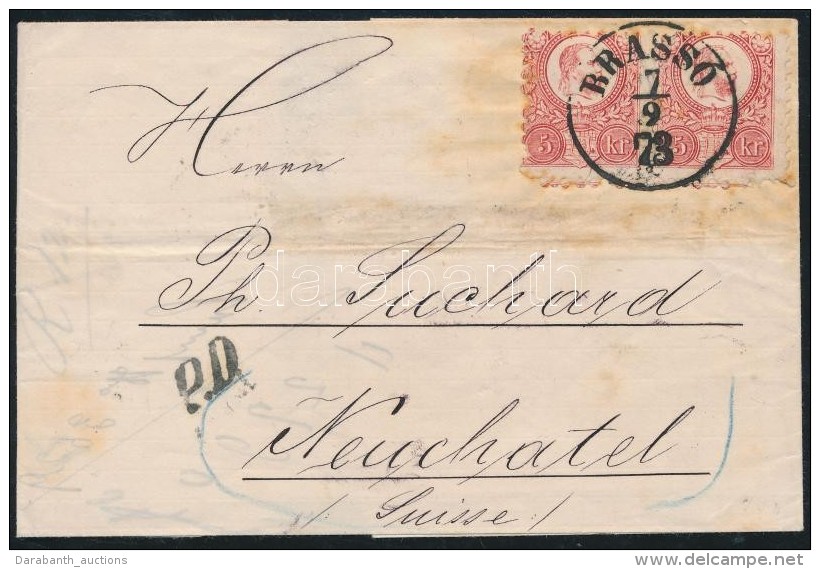 BRASSO
7
9
73
5 kr 5 kr
Herrn
Ph. Suchard
darabanth
P.D.
Neuchatel
/Suisse/
Darabanth_auctions
delcampe.net